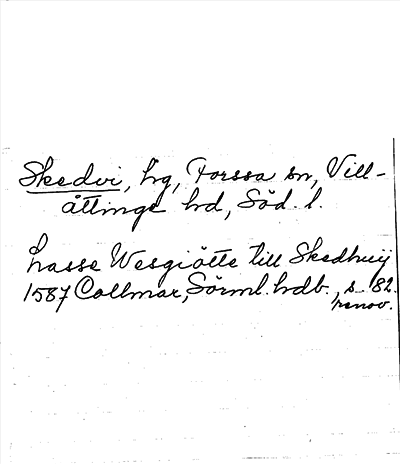 Skedvi, hg, Forssa sn, Vill-
åttinge hd, Söd. l.
Lasse Wesgiötte till Skedhuij
1587 Collmar, Sörml. hdb., s. 82.
renov.